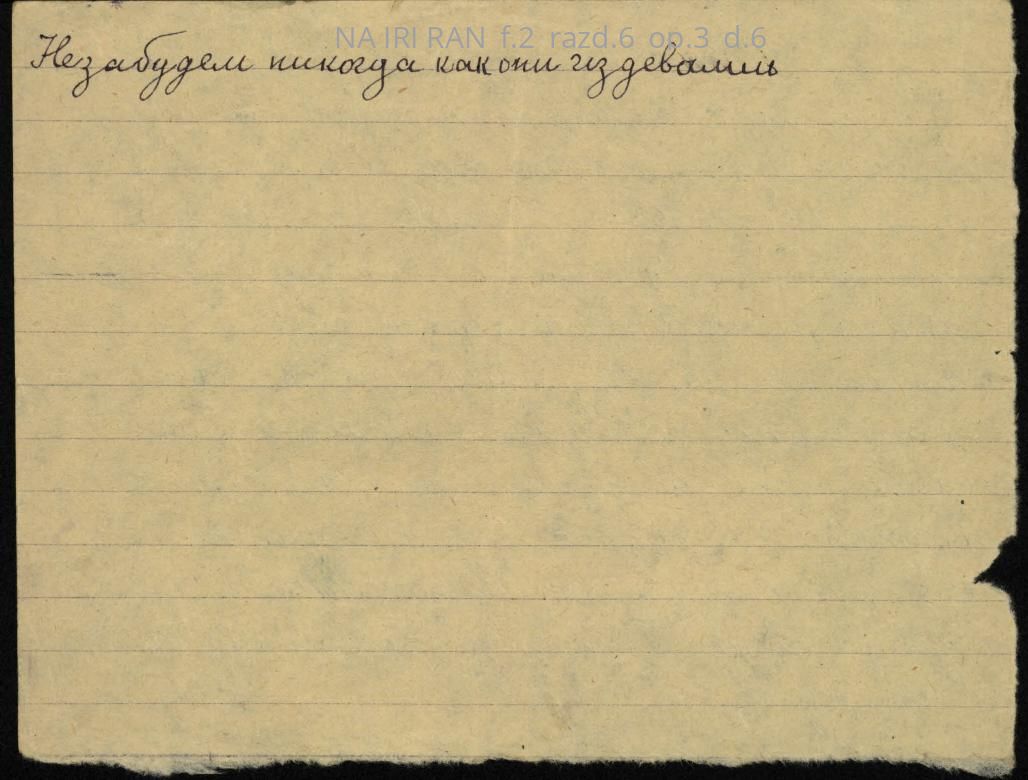 NA IRI RAN f.2 razd.6 op.3 d.6
Не забудем никогда как они издевались